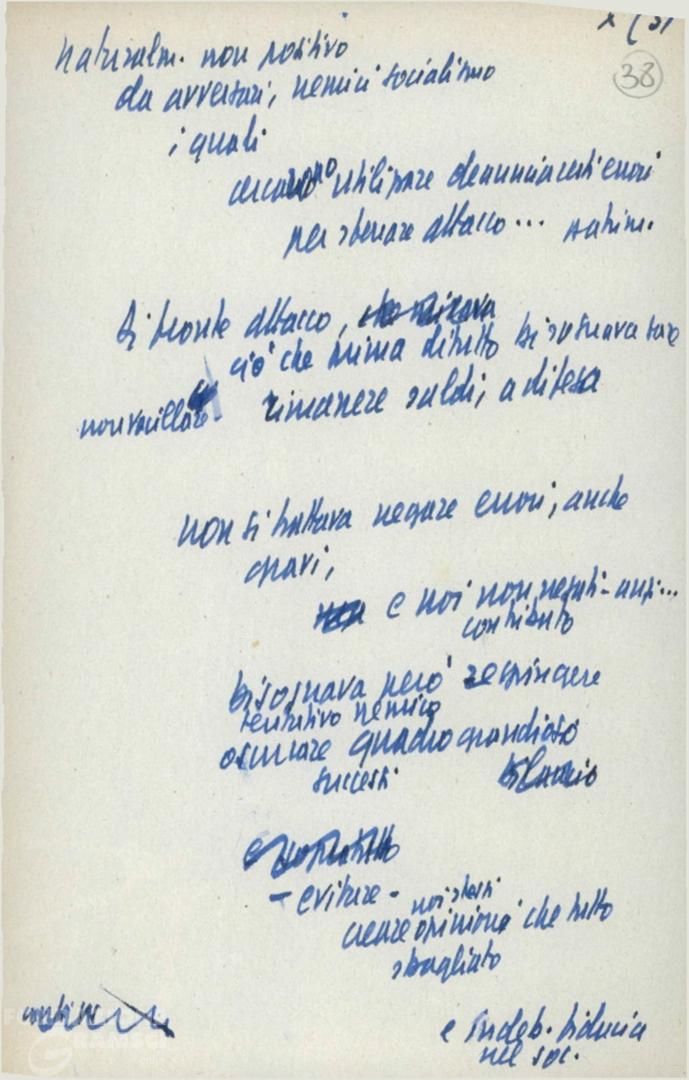 38
naturalm. non positivo
da avversari, nemici socialismo
i quali
cercarono utilizzare denuncia certi errori
per sferrare attacco... patrim.
di fronte attacco,
ciò che prima di tutto bisognava fare
non vacillare - rimanere saldi, a difesa
non si trattava negare errori, anche
gravi,
e noi non negati - anzi...
contributo
bisognava però respingere
tentativo nemico
oscurare quadro grandioso
successi bilancio
e soprattutto
- evitare - noi stessi
creare opinione che tutto
sbagliato
e indeb. fiducia
nel soc.
GRAMSCI